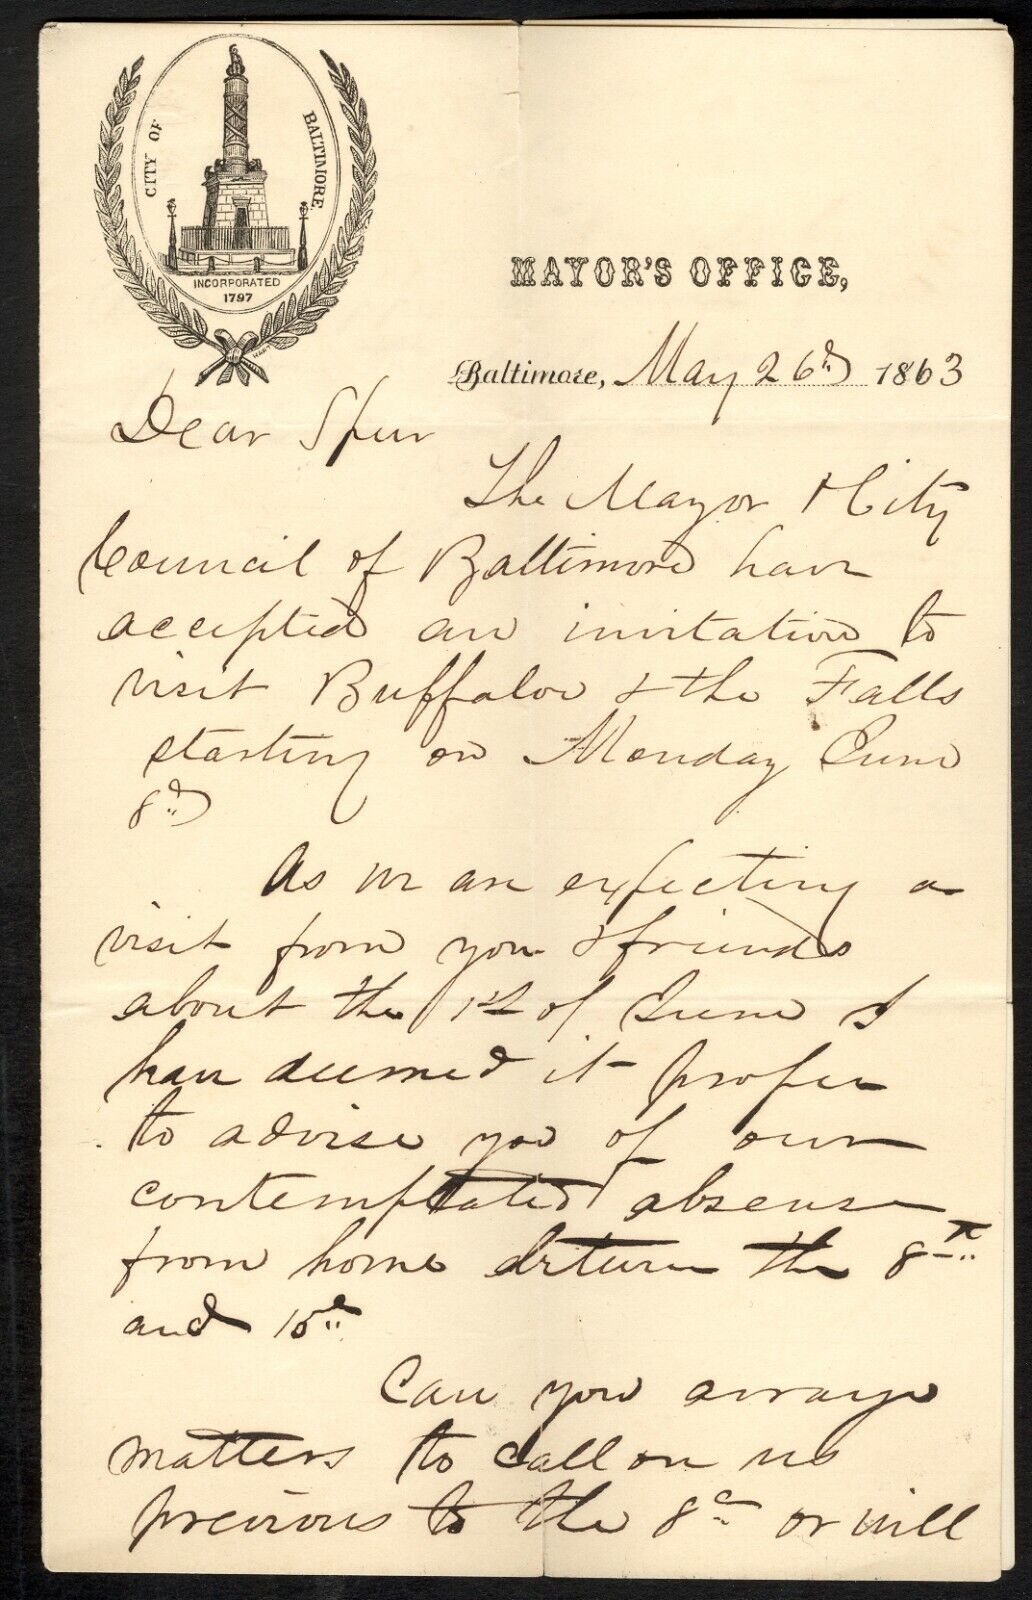 CITY OF BALTIMORE.
INCORPORATED
1797
HART
MAYOR'S OFFICE,
Baltimore, May 26th 1863
Dear Spur
The Mayor & City
Council of Baltimore have
accepted an invitation to
visit Buffaloe & the Falls
starting on Monday June
8th
As we are expecting a
visit from you & friends
about the 1st of June I
have deemed it proper
to advise you of our
contemplated absense
from home between the 8th
and 15th
Can you arrange
matters to call on us
previous to the 8th or will